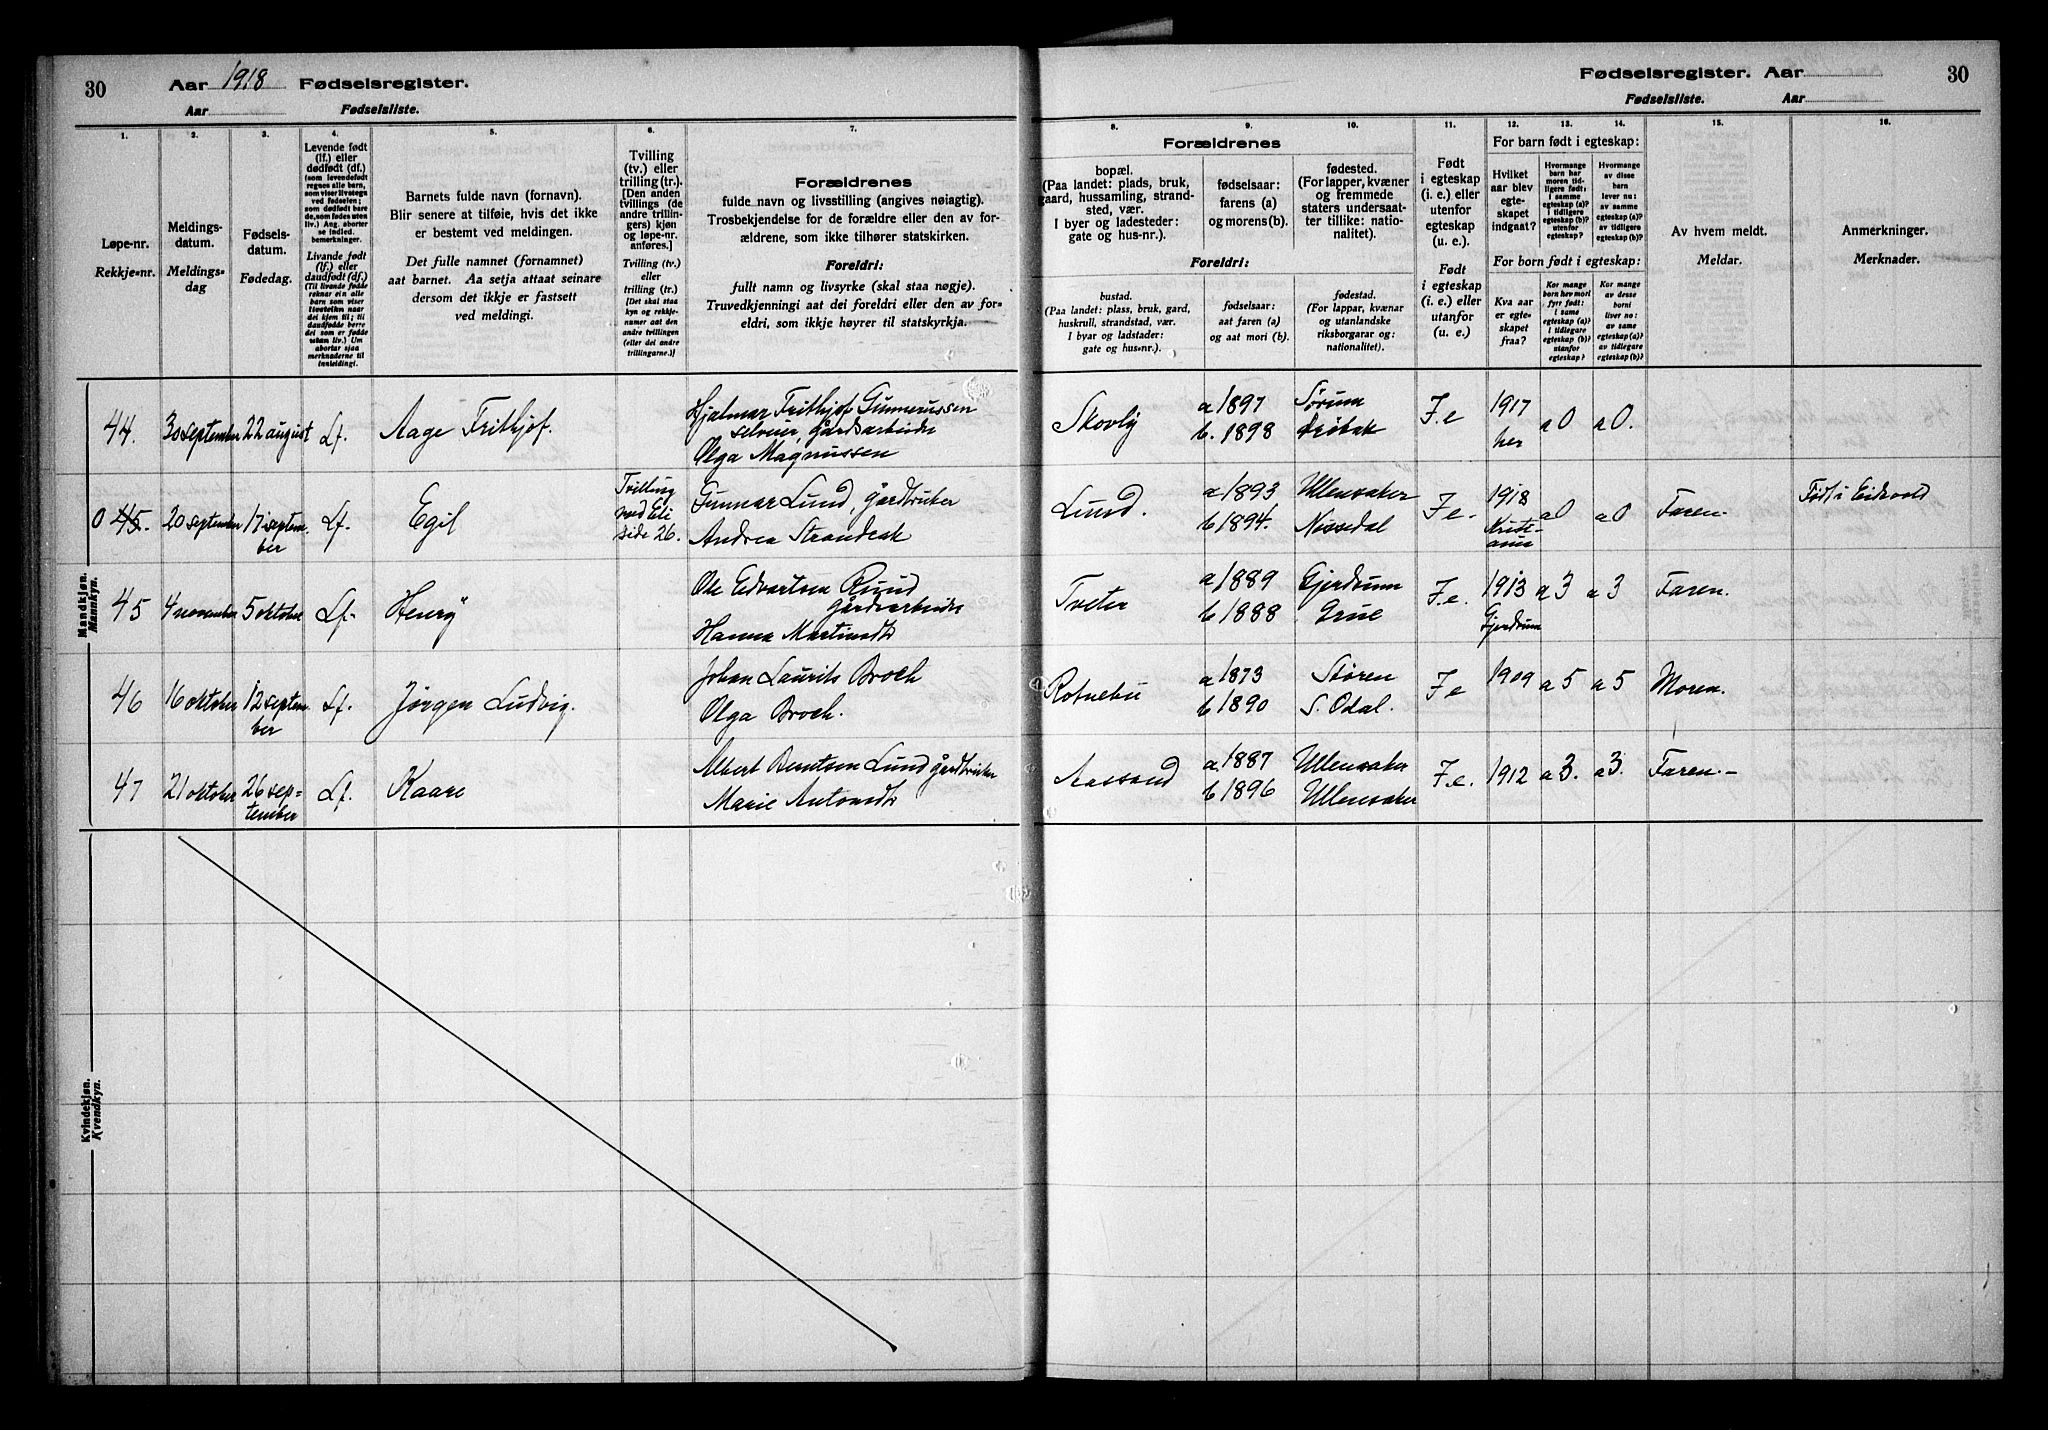 30
Aar 1918 Fødselsregister.
Aar Fødselsliste.
Fødselsregister. Aar
30
Fødselsliste. Aar
1. 2. 3. 4. 5. 6. 7.
8. 9. 10. 11. 12. 13. 14. 15. 16.
Løpe-nr.
Rekkje-nr.
Meldings-
datum.
Meldings-
dag
Fødsels-
datum.
Fødedag.
Levende født
(lf.) eller
dødfødt (df.)
(som levendefødt
regnes alle barn,
som viser livstegn
ved fødselen;
som dødfødt bare
de, som fødes uten
liv.) Ang. aborter
se indled.
bemerkninger.
Livande født
(lf.) eller
daudfødt (df.)
(Til livande fødde
reknar ein alle
barn som viser
livsteikn naar
dei kjem til; til
daudfødde berre
dei som er fødde
utan liv.) Um
abortar sjaa
merknaderne til
innleidingi.
Barnets fulde navn (fornavn).
Blir senere at tilføie, hvis det ikke
er bestemt ved meldingen.
Det fulle namnet (fornamnet)
aat barnet. Aa setja attaat seinare
dersom det ikkje er fastsett
ved meldingi.
Tvilling
(tv.) eller
trilling (tr.).
[Den anden
tvillings (de
andre trillin-
gers) kjøn
og løpe-nr.
anføres.]
Tvilling (tv.)
eller
trilling (tr.)
[Det skal staa
kyn og rekkje-
numer aat den
andre tvillingen
(eller dei andre
trillingarne.)]
Forældrenes
fulde navn og livsstilling (angives nøiagtig).
Trosbekjendelse for de forældre eller den av for-
ældrene, som ikke tilhører statskirken.
Foreldri:
fullt namn og livsyrke (skal staa nøgje).
Truvedkjenningi aat dei foreldri eller den av for-
eldri, som ikkje høyrer til statskyrkja.
Forældrenes
bopæl.
(Paa landet: plads, bruk,
gaard, hussamling, strand-
sted, vær.
I byer og ladesteder:
gate og hus-nr.).
fødselsaar:
farens (a)
og morens(b).
fødested.
(For lapper, kvæner
og fremmede
staters undersaat-
ter tillike: natio-
nalitet).
Foreldri:
bustad.
(Paa landet: plass, bruk, gard,
huskrull, strandstad, vær.
I byar og ladstader:
gate og hus-nr.).
fødselsaar:
aat faren (a)
og aat mori (b).
fødestad.
(For lappar, kvænar
og utanlandske
riksborgarar og:
nationalitet.)
Født
i egteskap
(i. e.) eller
utenfor
egteskap
(u. e.).
Født
i egteskap
(i. e.) eller
utanfor
(u. e.)
For barn født i egteskap:
Hvilket
aar blev
egte-
skapet
indgaat?
Hvormange
barn har
moren tid-
ligere født:
i samme
egteskap (a)?
i tidligere
egteskap (b)?
utenfor
egteskap?
Hvormange
av disse
barn
lever nu:
av samme
egteskap (a)?
av tidligere
egteskap (b)?
For born født i egteskap:
Kva aar
er egte-
skapet
fraa?
Kor mange
born hev mori
fyrr født:
i same
egteskap (a)?
i tidlegare
egteskap (b)?
utanfor
egteskap?
Kor mange
av desse
borni
liver no:
av same
egteskap (a)?
av tidlegare
egteskap (b)?
Av hvem meldt.
Meldar.
Anmerkninger.
Merknader.
Mandkjøn.
Mannkyn.
44. 30 september 22 august Lf. Aage Frithjof.
Hjalmar Frithjof Gunnerussen
selveier, gårdsarbeider
Olga Magnussen
Skovly a 1897 b. 1898 Sørum Drøbak I.e 1917 her a0 a0.
0 45. 20 september 17 september Lf. Egil
Tvilling
med Eli
side 26.
Gunnar Lund, gårdbruker
Andrea Strandeak
Lund. a 1893 b 1894. Ullensaker Nissedal I.e. 1918 Kristiania a0 a0 Faren. Født i Eidsvold
45 4 november 5 oktober Lf. Henry
Ole Edvartsen Ruud
gårdsarbeider
Hanna Martinsdtr
Tveter a 1889 b 1888 Gjerdrum Grue I.e. 1913 Gjerdrum a3 a3 Faren.
46 16 oktober 12 september Lf. Jørgen Ludvig.
Johan Laurits Broch
Olga Broch.
Rotnebu a 1873 b 1890 Støren S. Odal. I.e 1909 a5 a5 Moren.
47 21 oktober 26 september Lf. Kaare
Albert Berntsen Lund gårdbruker
Marie Antonsdtr
Aassand a 1887 b 1896 Ullensaker Ullensaker I.e. 1912 a3. a3. Faren.-
Kvindekjøn.
Kvendkyn.